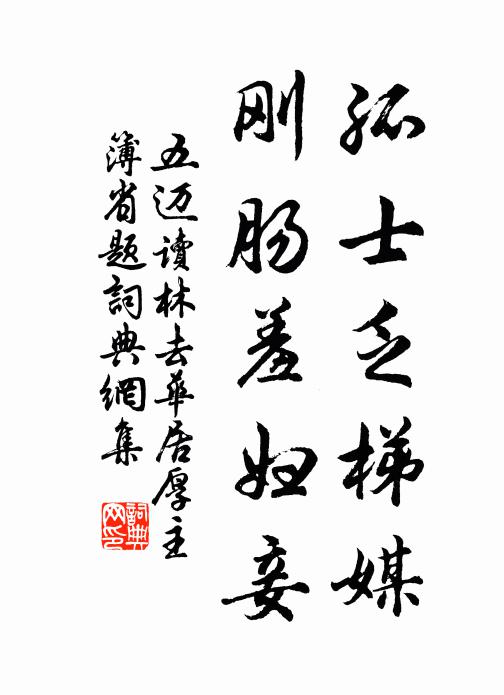 孤士乏梯媒
刚肠羞妇妾
五迈讀林去華居厚主
簿省题詞典網集
詞典
网印